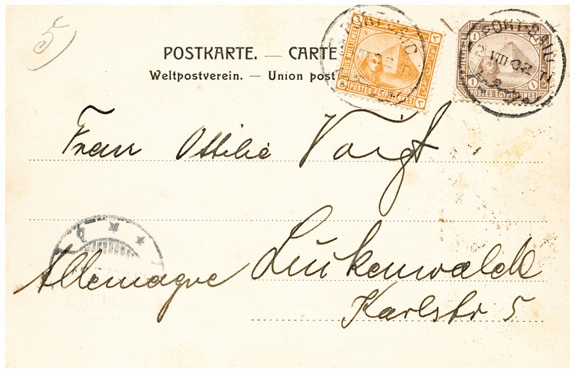 5
POSTKARTE. — CARTE
Weltpostverein. — Union post
PORT-SAID
PORT-SAID
2 VIII 02
Frau Ottilie Voigt
Allemagne Luckenwalde
Karlstr 5